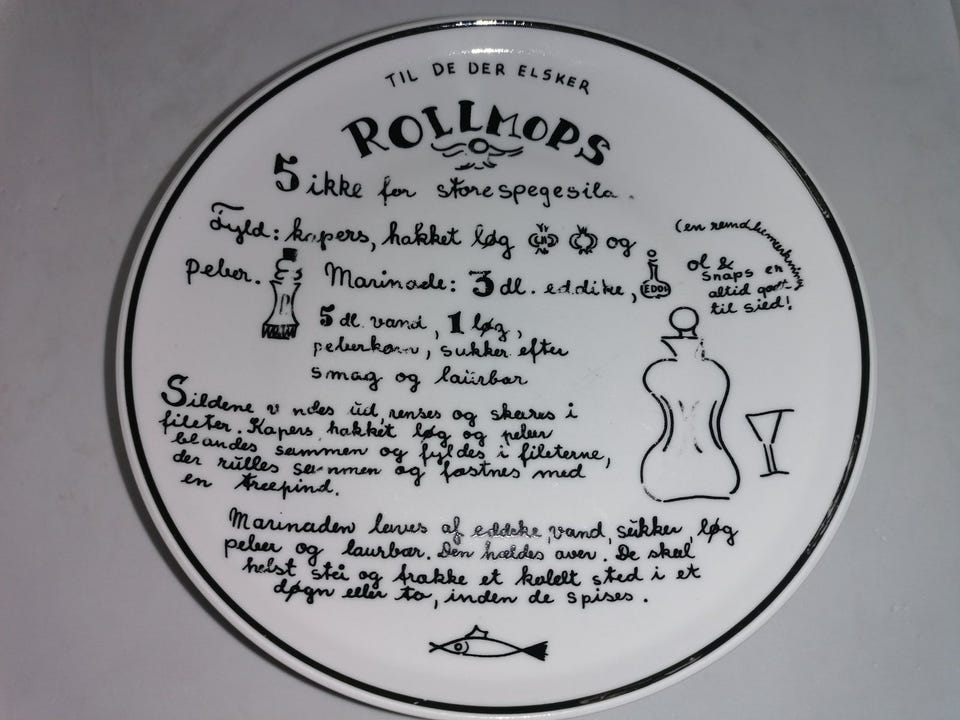 TIL DE DER ELSKER
ROLLMOPS
5 ikke for store spegesild.
Fyld: kapers, hakket løg og
peber.
Marinade: 3 dl. eddike,
EDDI
5 dl. vand, 1 løg,
peberkorn, sukker efter
smag og laurbær
(en
øl &
snaps er
altid godt
til sild!
Sildene vandes ud, renses og skæres i
fileter. Kapers, hakket løg og peber
blandes sammen og fyldes i fileterne,
der rulles sammen og fæstnes med
en træpind.
Marinaden laves af eddike, vand, sukker, løg
peber og laurbær. Den hældes over. De skal
helst stå og trække et koldt sted i et
døgn eller to, inden de spises.